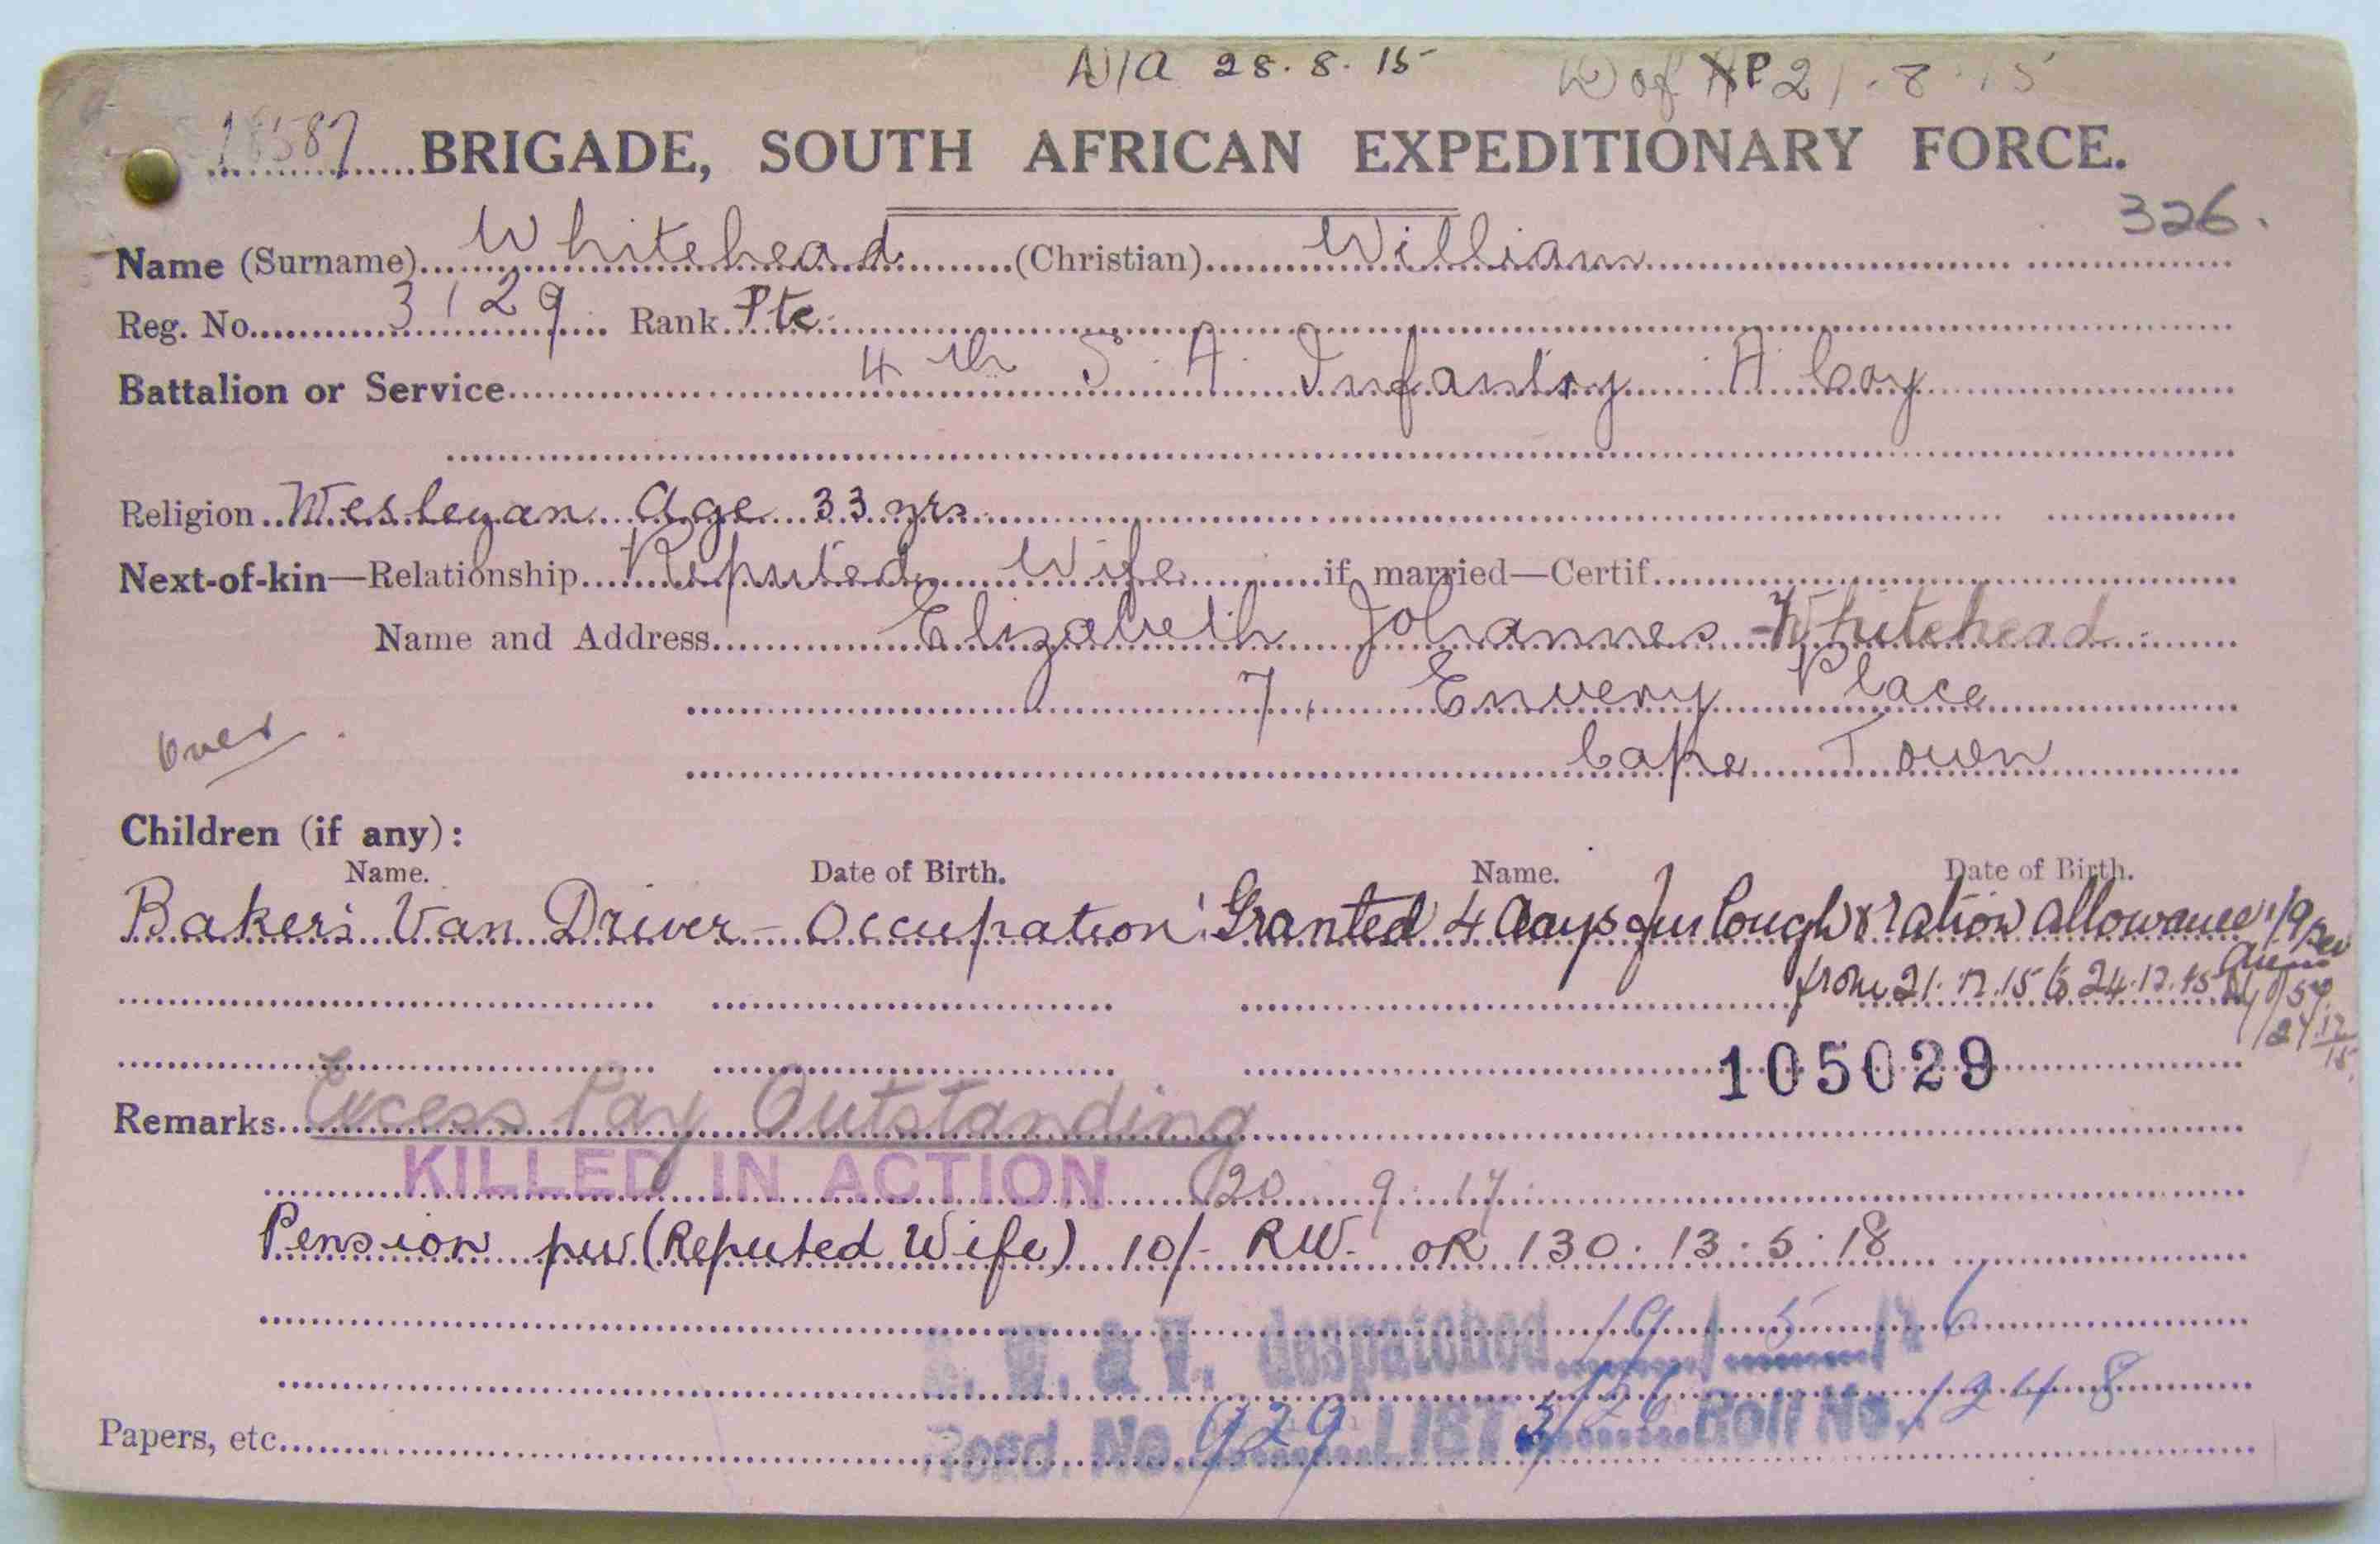 D/A 28.8.15 D of P 21.8.15
18587 BRIGADE, SOUTH AFRICAN EXPEDITIONARY FORCE.
326.
Name (Surname) Whitehead (Christian) William
Reg. No. 3129 Rank Pte
Battalion or Service 4th S.A. Infantry A Coy
Religion Wesleyan Age 33 yrs
Next-of-kin—Relationship Reputed Wife if married—Certif.
Name and Address Elizabeth Johannes Whitehead
7, Envery Place
Over Cape Town
Children (if any):
Name. Date of Birth. Name. Date of Birth.
Bakers Van Driver - Occupation Granted 4 days furlough & ration allowance 1/9 per
from 21.12.15 to 24.12.15
105029
Remarks Excess Pay Outstanding
KILLED IN ACTION 20.9.17
Pension pw (Reputed Wife) 10/- RW. OR 130. 13.5.18
W. & V. despatched 19/5/26
No. 929 LIST 3/26 Roll No. 1248
Papers, etc.